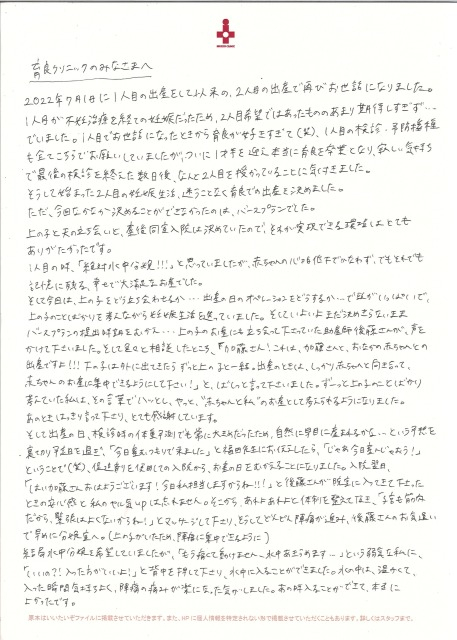 育良クリニックのみなさまへ
2022年7月1日に1人目の出産をして以来の、2人目の出産で再びお世話になりました。
1人目が不妊治療を経ての妊娠だったため、2人目希望ではあったもののあまり期待しすぎず…
でいました。1人目でお世話になったときから育良が好きすぎて(笑)、1人目の検診・予防接種
も全てこちらでお願いしていましたが、ついに1才半を迎え本当に育良を卒業となり、寂しい気持ち
で最後の検診を終えた数日後、なんと2人目を授かっていることに気付きました。
そうして始まった2人目の妊娠生活、迷うことなく育良での出産を決めました。
ただ、今回なかなか決めることができなかったのは、バースプランでした。
上の子と夫の立ち会いと、産後同室入院は決めていたので、それが実現できる環境はとても
ありがたかったです。
1人目の時、「絶対水中分娩!!!」と思っていましたが、赤ちゃんの心拍低下でかなわず、でもとても
記憶に残る、幸せで大満足なお産でした。
そして今回は、上の子をどう立ち会わせるか…出産の日のオペレーションをどうするか…で頭がいっぱいで、
上の子のことばかりを考えながら妊娠生活を送っていました。そしていよいよまだ決めきらないまま
バースプランの提出時期をむかえ…上のお産にも立ち会って下さっていた助産師後藤さんが、声を
かけて下さいました。そして色々と相談したところ、「加藤さん!これは、加藤さんと、おなかの赤ちゃんとの
出産ですよ!!!下の子は外に出てきたらずっと上の子と一緒。出産のときは、しっかり赤ちゃんと向き合って、
赤ちゃんのお産に集中できるようにして下さい!」と、ばしっと言って下さいました。ずーっと上の子のことばかり
考えていた私は、その言葉でハッとし、やっと、"赤ちゃんと私"のお産として考えられるようになりました。
あのときはっきり言って下さり、とても感謝しています。
そして出産の日、検診時の体重予測でも常に大きめだったため、自然に早目に産まれるかな…という予想を
裏切り予定日を過ぎ、「今日産むつもりで来ました」と お伝えしたら、「じゃあ今日産んじゃおう!」
ということで(笑)、促進剤を使用しての入院から、お産の日をむかえることになりました。入院翌日、
「はい加藤さんおはようございます!今日私担当しますからね!!!」と後藤さんが院室に入ってきて下さった
ときの安心感と私のやる気upは忘れません。そこから、あれよあれよと体制を整えて下さり、「子宮も筋肉
だから、緊張はよくないからね!」とマッサージして下さり、そうしてどんどん陣痛が進み、後藤さんのお気遣い
で早めに分娩室へ。(上の子がいたため、陣痛に集中できるように)
結局水中分娩を希望していましたが、「もう痛くて動けません…水中あきらめます…」という弱気な私に、
「いいの?!入った方がいいよ!」と背中を押して下さり、水中に入ることができました。水の中は、温かくて、
入った瞬間気持ちよく、陣痛の痛みが楽になった気がしました。あの時入ることができて、本当に
よかったです。
原本はいいたいそファイルに掲載させていただきます。また、HPに個人情報を特定されない形で掲載させていただくこともあります。詳しくはスタッフまで。